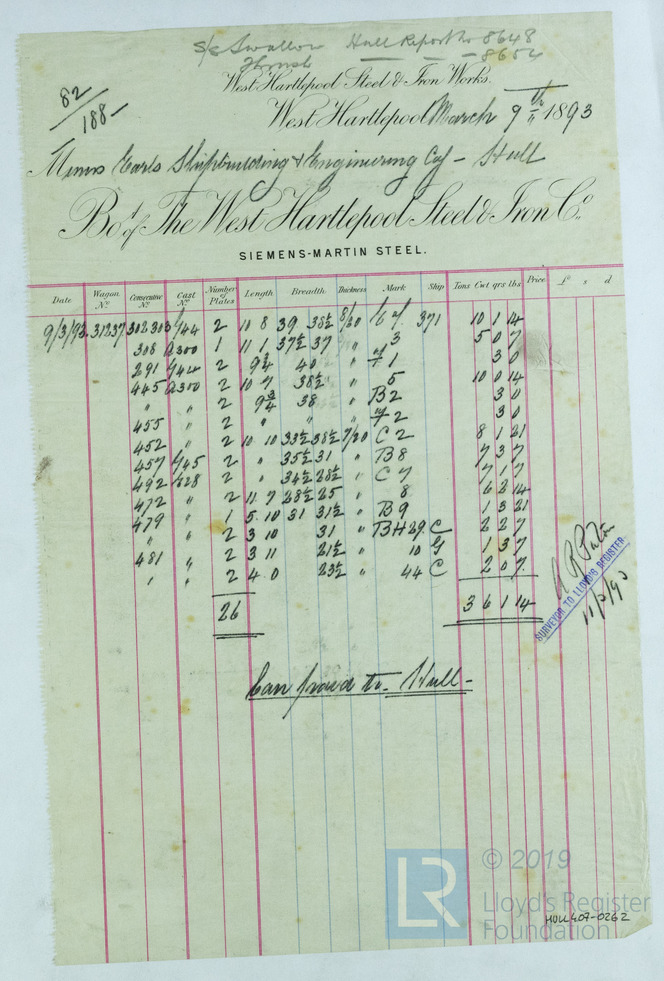 S/S Swallow Hull Report No 8648
Thrush — — 8654
West Hartlepool Steel & Iron Works.
82/188-
West Hartlepool March 9th 1893
Messrs Earls Shipbuilding & Engineering Coy - Hull
Bot of The West Hartlepool Steel & Iron Co.
SIEMENS-MARTIN STEEL.
Date Wagon No Consecutive No Cast No Number of Plates Length Breadth Thickness Mark Ship Tons Cwt qrs lbs Price £ s d
9/3/93 31237 302 303 2 10 8 39 38½ 8/20 371 10 1 14
308 300 1 11 1 37½ 37 " 3 5 0 7
291 2 9¾ 40 " 1 3 0
445 300 2 10 7 38½ " 5 10 0 14
" " 2 9¾ 38 " B 2 3 0
455 " 2 " " " 2 3 0
452 " 2 10 10 33½ 38½ 7/20 C 2 8 1 21
457 2 " 35½ 31 " B 8 7 3 7
492 2 " 34½ 28½ " C 7 7 1 7
472 " 2 11 7 28½ 25 " 8 6 2 14
479 " 1 5 10 31 31½ " B 9 1 3 21
" " 2 3 10 31 " BH 29 C 2 2 7
481 " 2 3 11 21½ " 10 1 3 7
" " 2 4 0 23½ " 44 C 2 0 7
26 3 6 1 14
SURVEYOR TO LLOYD'S REGISTER
Hull
LR
© 2019
Lloyd's Register
Foundation
HULL409-0262